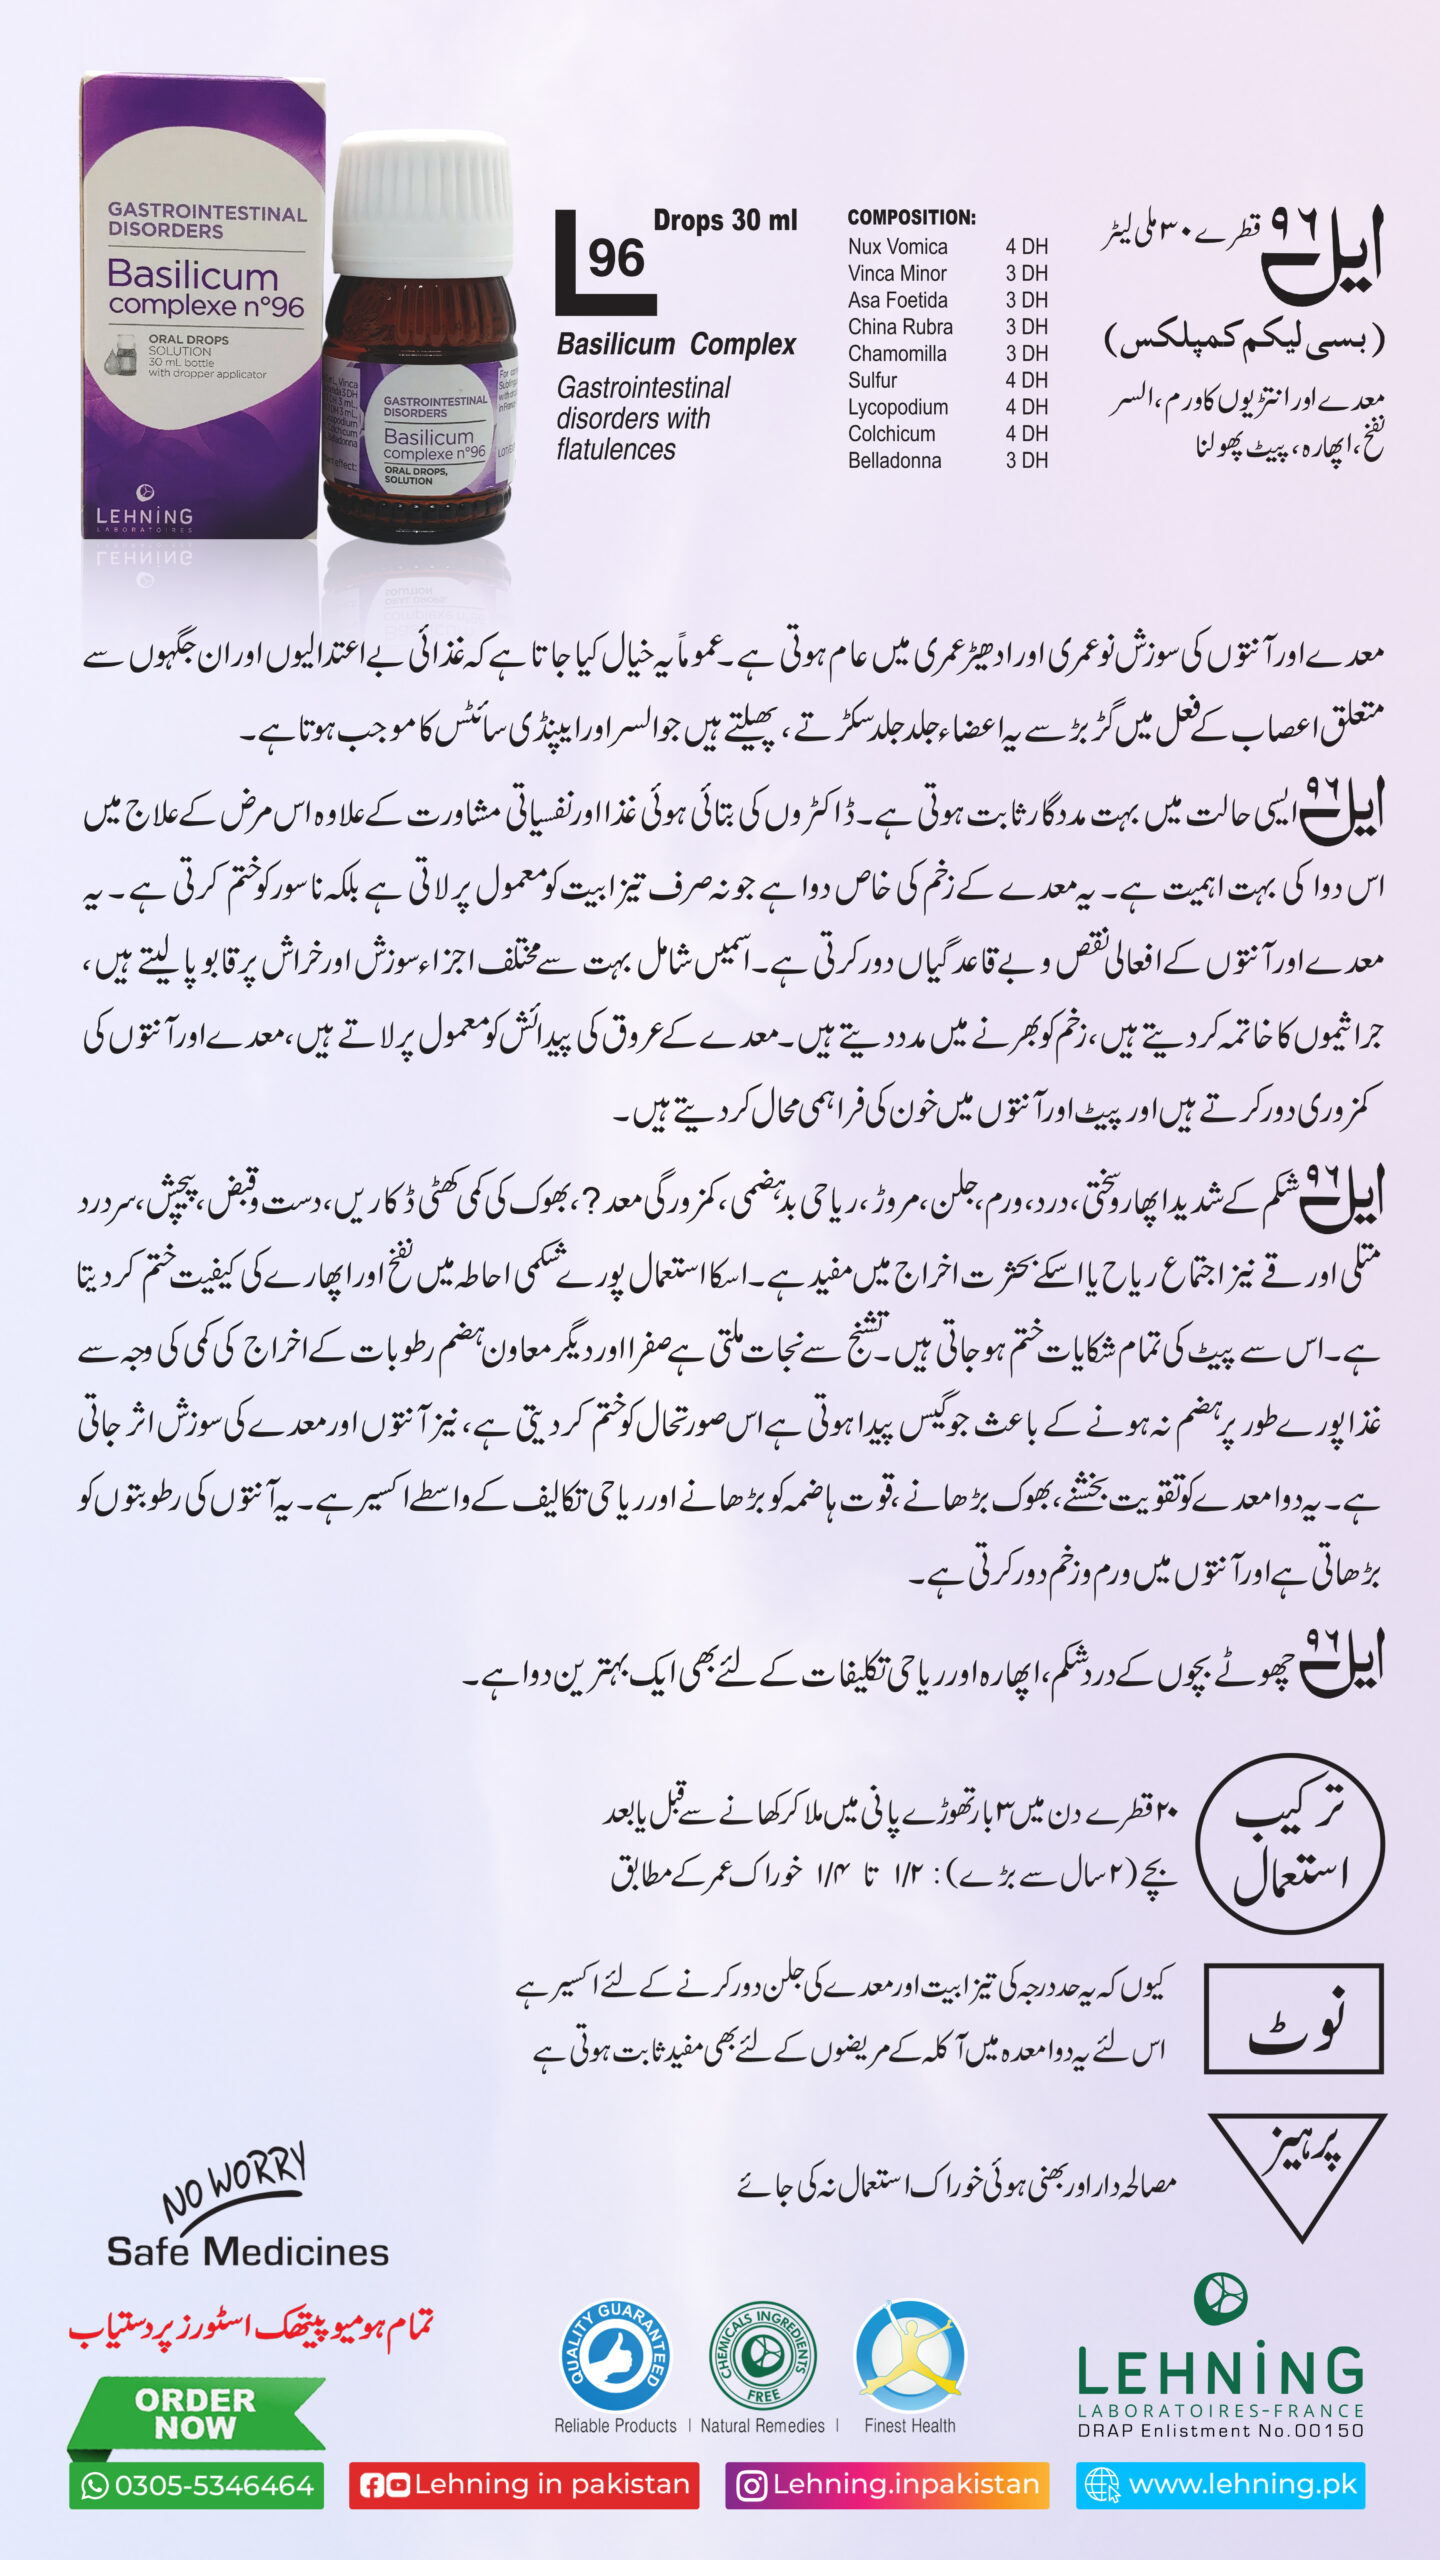 GASTROINTESTINAL
DISORDERS
Basilicum
complexe n°96
ORAL DROPS
SOLUTION
30 mL bottle
with dropper applicator
LEHNING
LABORATOIRES
GASTROINTESTINAL
DISORDERS
Basilicum
complexe n°96
ORAL DROPS,
SOLUTION
L 96 Drops 30 ml
Basilicum Complex
Gastrointestinal
disorders with
flatulences
COMPOSITION:
Nux Vomica 4 DH
Vinca Minor 3 DH
Asa Foetida 3 DH
China Rubra 3 DH
Chamomilla 3 DH
Sulfur 4 DH
Lycopodium 4 DH
Colchicum 4 DH
Belladonna 3 DH
ایل ۹۶ قطرے ۳۰ ملی لیٹر
(بسی لیکم کمپلکس)
معدے اور انتڑیوں کا ورم، السر
نفخ، اپھارہ، پیٹ پھولنا
معدے اور آنتوں کی سوزش نوعمری اور ادھیڑ عمری میں عام ہوتی ہے۔ عموماً یہ خیال کیا جاتا ہے کہ غذائی بے اعتدالیوں اور ان جگہوں سے
متعلق اعصاب کے فعل میں گڑبڑ سے یہ اعضاء جلد جلد سکڑتے، پھیلتے ہیں جو السر اور اپینڈی سائٹس کا موجب ہوتا ہے۔
ایل ۹۶ ایسی حالت میں بہت مددگار ثابت ہوتی ہے۔ ڈاکٹروں کی بتائی ہوئی غذا اور نفسیاتی مشاورت کے علاوہ اس مرض کے علاج میں
اس دوا کی بہت اہمیت ہے۔ یہ معدے کے زخم کی خاص دوا ہے جو نہ صرف تیزابیت کو معمول پر لاتی ہے بلکہ ناسور کو ختم کرتی ہے۔ یہ
معدے اور آنتوں کے افعالی نقص و بے قاعدگیاں دور کرتی ہے۔ اسمیں شامل بہت سے مختلف اجزاء سوزش اور خراش پر قابو پالیتے ہیں،
جراثیموں کا خاتمہ کر دیتے ہیں، زخم کو بھرنے میں مدد دیتے ہیں۔ معدے کے عروق کی پیدائش کو معمول پر لاتے ہیں، معدے اور آنتوں کی
کمزوری دور کرتے ہیں اور پیٹ اور آنتوں میں خون کی فراہمی محال کر دیتے ہیں۔
ایل ۹۶ شکم کے شدید اپھار و سختی، درد، ورم، جلن، مروڑ، ریاحی بدہضمی، کمزورگی معد?، بھوک کی کمی کھٹی ڈکاریں، دست و قبض، پیچش، سردرد
متلی اور قے نیز اجتماع ریاح یا اسکے بکثرت اخراج میں مفید ہے۔ اسکا استعمال پورے شکمی احاطہ میں نفخ اور اپھارے کی کیفیت ختم کر دیتا
ہے۔ اس سے پیٹ کی تمام شکایات ختم ہو جاتی ہیں۔ تشنج سے نجات ملتی ہے صفرا اور دیگر معاون ہضم رطوبات کے اخراج کی کمی کی وجہ سے
غذا پورے طور پر ہضم نہ ہونے کے باعث جو گیس پیدا ہوتی ہے اس صورتحال کو ختم کر دیتی ہے، نیز آنتوں اور معدے کی سوزش اثر جاتی
ہے۔ یہ دوا معدے کو تقویت بخشنے، بھوک بڑھانے، قوت ہاضمہ کو بڑھانے اور ریاحی تکالیف کے واسطے اکسیر ہے۔ یہ آنتوں کی رطوبتوں کو
بڑھاتی ہے اور آنتوں میں ورم و زخم دور کرتی ہے۔
ایل ۹۶ چھوٹے بچوں کے درد شکم، اپھارہ اور ریاحی تکلیفات کے لئے بھی ایک بہترین دوا ہے۔
ترکیب
استعمال
۲۰ قطرے دن میں ۳ بار تھوڑے پانی میں ملا کر کھانے سے قبل یا بعد
بچے (۲ سال سے بڑے): ۱/۲ تا ۱/۴ خوراک عمر کے مطابق
نوٹ
کیوں کہ یہ حد درجہ کی تیزابیت اور معدے کی جلن دور کرنے کے لئے اکسیر ہے
اس لئے یہ دوا معدہ میں آکلہ کے مریضوں کے لئے بھی مفید ثابت ہوتی ہے
پرہیز
مصالحہ دار اور بھنی ہوئی خوراک استعمال نہ کی جائے
NO WORRY
Safe Medicines
تمام ہومیو پیتھک اسٹورز پر دستیاب
ORDER
NOW
QUALITY GUARANTEED
CHEMICALS INGREDIENTS FREE
Reliable Products | Natural Remedies | Finest Health
LEHNING
LABORATOIRES-FRANCE
DRAP Enlistment No.00150
0305-5346464
Lehning in pakistan
Lehning.inpakistan
www.lehning.pk